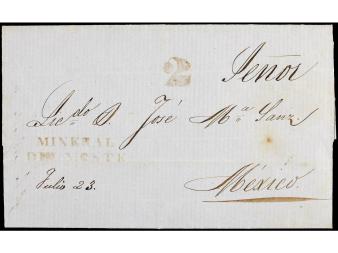 2
Señor
Lic.do D. José M.a Sanz.
MINERAL
DEL MONTE
Julio 23.
México.